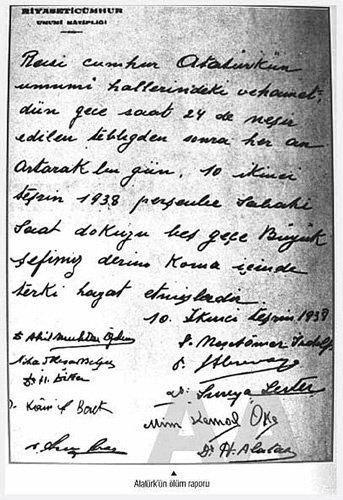 RİYASETİCÜMHUR
UMUMİ KATİPLİĞİ
Reisi cumhur Atatürkün
umumî hallerindeki vehamet,
dün gece saat 24 de neşir
edilen tebliğden sonra her an
artarak bu gün, 10 ikinci
teşrin 1938 perşenbe sabahı
saat dokuzu beş geçe Büyük
şefimiz derin koma içinde
terki hayat etmişlerdir.
10. İkinci teşrin 1938
Dr Akil Muhtar Özden
Dr.
Dr. Süreya Serter
Mim Kemal Öke
Dr. H. Alataş
AA
Atatürk'ün ölüm raporu